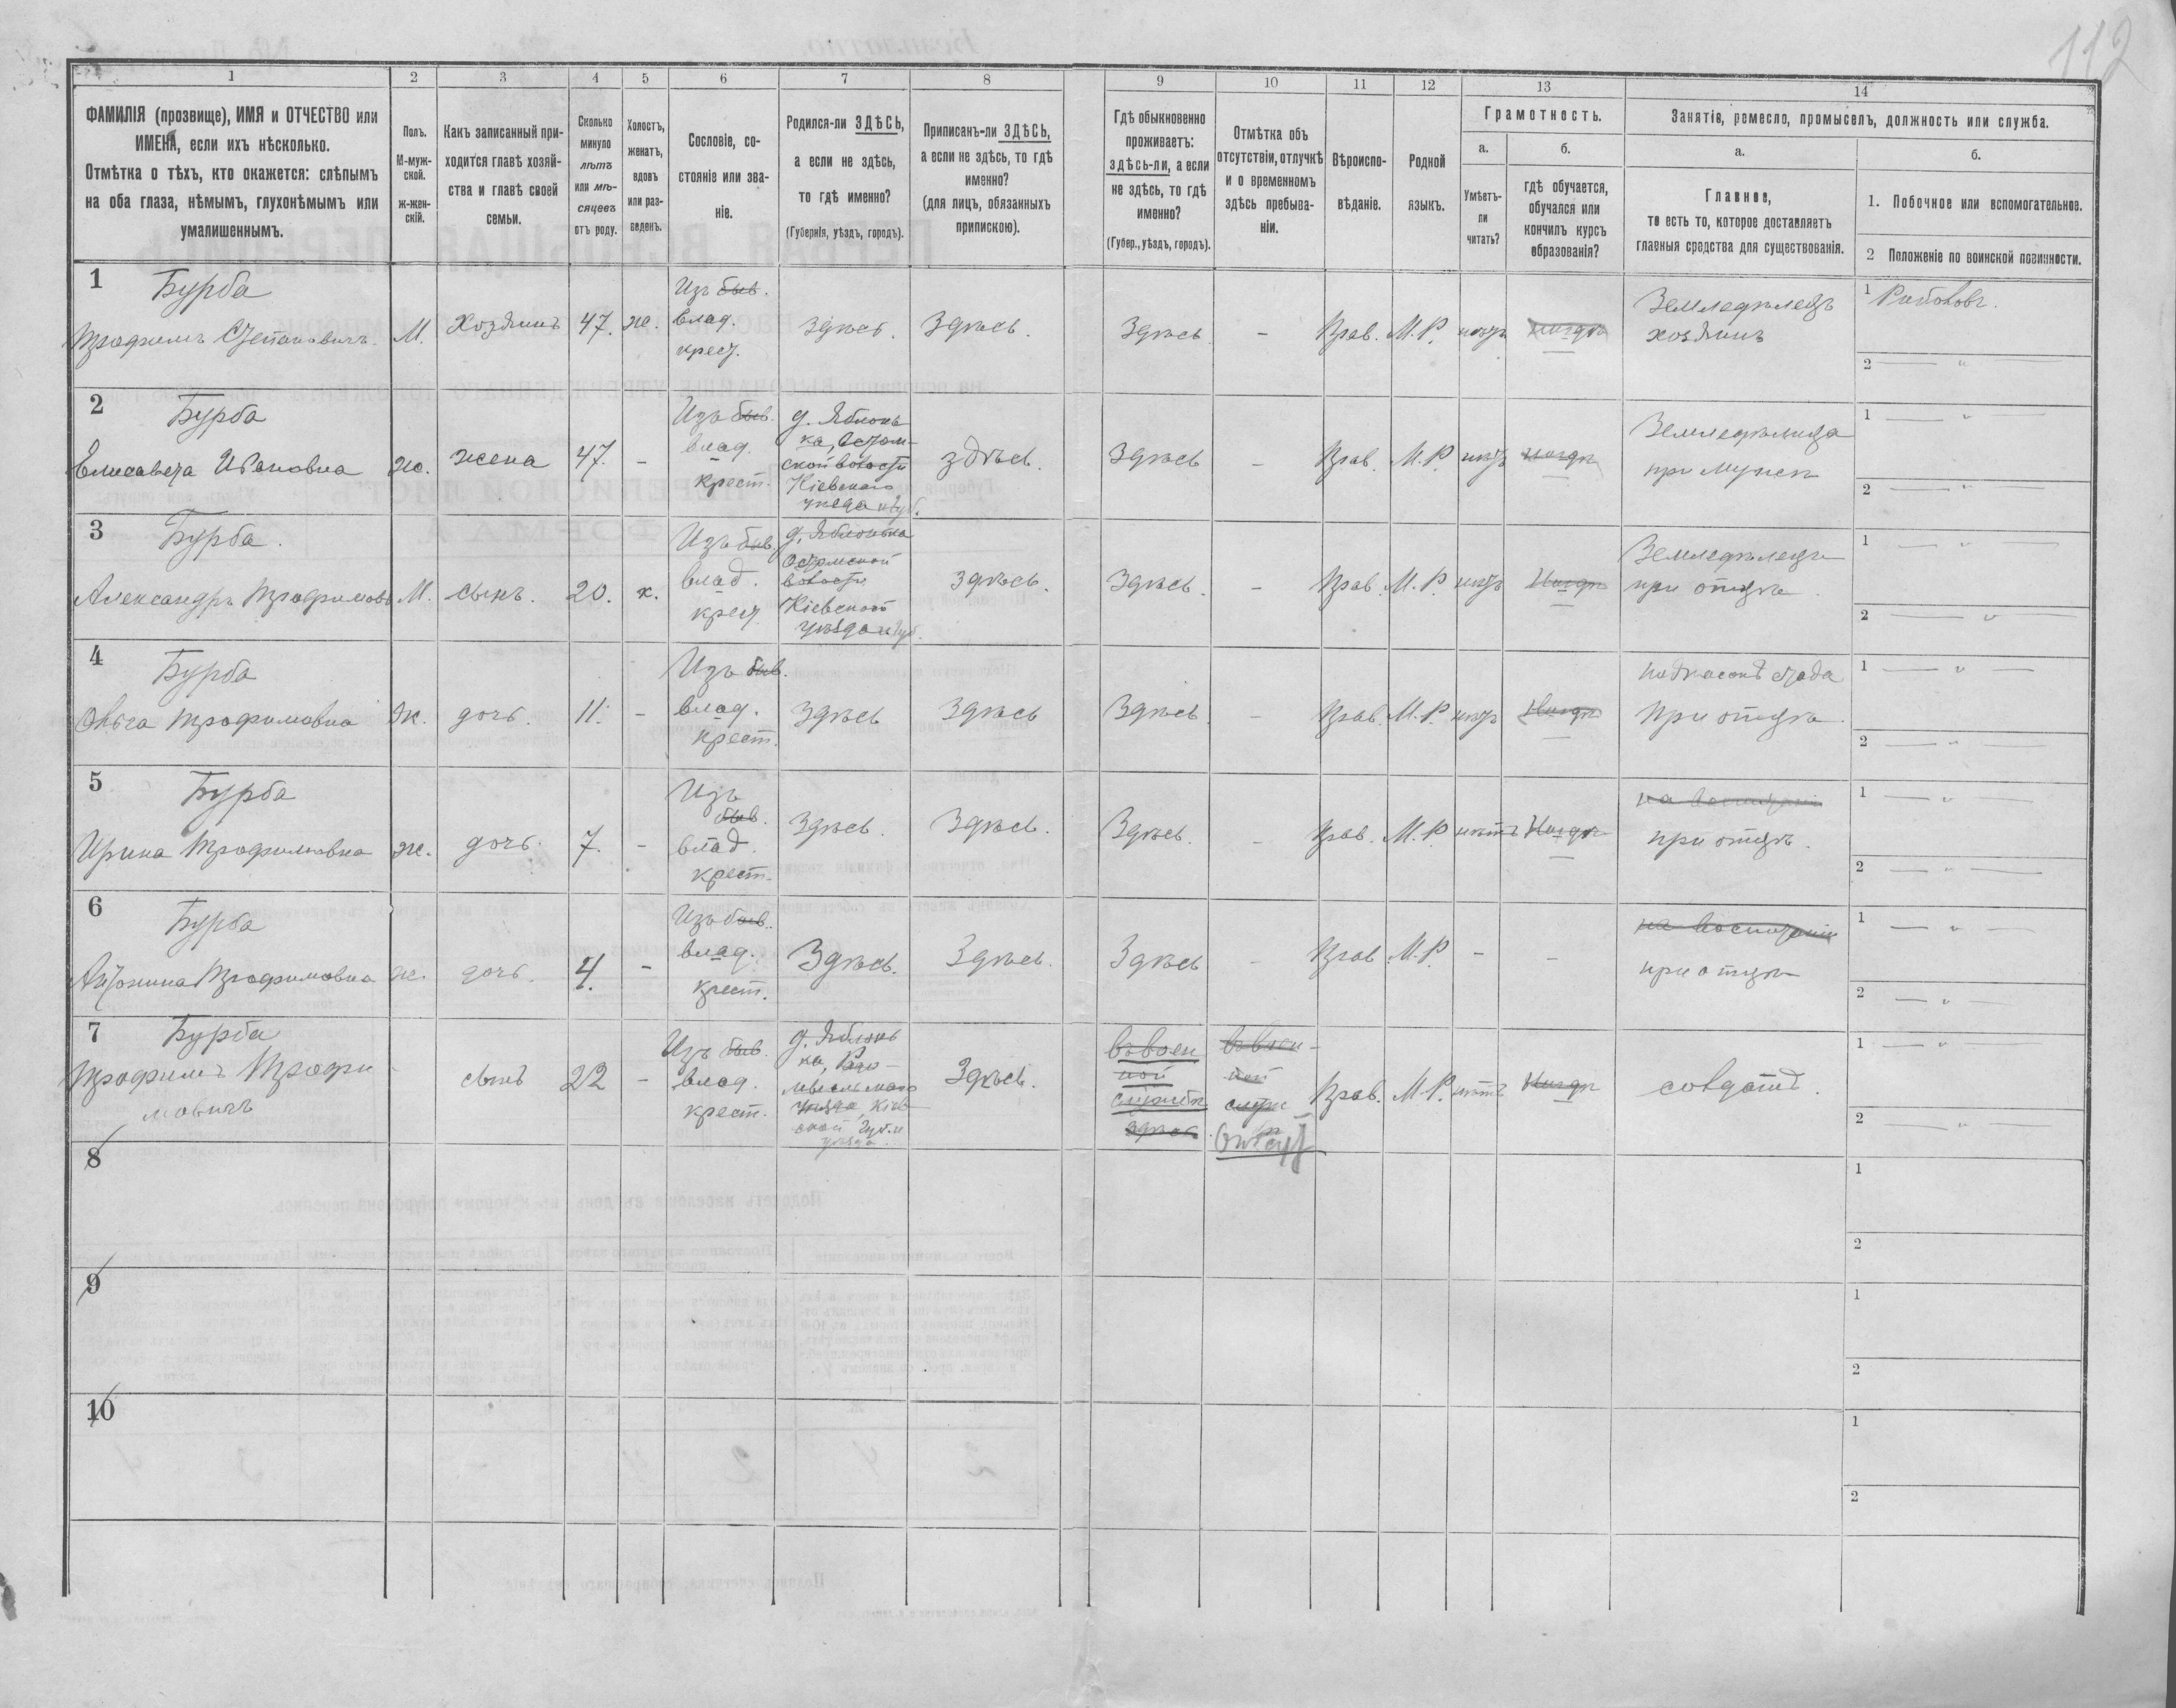 112
1 2 3 4 5 6 7 8 9 10 11 12 13 14
ФАМИЛІЯ (прозвище), ИМЯ и ОТЧЕСТВО или
ИМЕНА, если ихъ нѣсколько.
Отмѣтка о тѣхъ, кто окажется: слѣпымъ
на оба глаза, нѣмымъ, глухонѣмымъ или
умалишеннымъ.
Полъ.
М-муж-
ской.
ж-жен-
скій.
Какъ записанный при-
ходится главѣ хозяй-
ства и главѣ своей
семьи.
Сколько
минуло
лѣтъ
или мѣ-
сяцевъ
отъ роду.
Холостъ,
женатъ,
вдовъ
или раз-
веденъ.
Сословіе, со-
стояніе или зва-
ніе.
Родился-ли ЗДѢСЬ,
а если не здѣсь,
то гдѣ именно?
(Губернія, уѣздъ, городъ).
Приписанъ-ли ЗДѢСЬ,
а если не здѣсь, то гдѣ
именно?
(для лицъ, обязанныхъ
припискою).
Гдѣ обыкновенно
проживаетъ:
здѣсь-ли, а если
не здѣсь, то гдѣ
именно?
(Губер., уѣздъ, городъ).
Отмѣтка объ
отсутствіи, отлучкѣ
и о временномъ
здѣсь пребыва-
ніи.
Вѣроиспо-
вѣданіе.
Родной
языкъ.
Грамотность.
а.
Умѣетъ-
ли
читать?
б.
гдѣ обучается,
обучался или
кончилъ курсъ
образованія?
Занятіе, ремесло, промыселъ, должность или служба.
а.
Главное,
то есть то, которое доставляетъ
главныя средства для существованія.
б.
1. Побочное или вспомогательное.
2 Положеніе по воинской повинности.
1 Бурба
Трофимъ Степановичъ М. Хозяинъ 47. ж.
Изъ быв.
влад.
крест.
Здѣсь. Здѣсь. Здѣсь. - Прав. М.Р. нѣтъ нигдѣ
Земледѣлецъ
хозяинъ
1
2 — " —
2 Бурба
Елисавета Ивановна ж. жена 47. -
Изъ быв.
влад.
крест.
д. Яблонь-
ка,
ской волости
Кіевскаго
уѣзда и губ.
здѣсь. Здѣсь - Прав. М.Р. нѣтъ нигдѣ
Земледѣлица
при мужѣ
1 — " —
2 — " —
3 Бурба.
Александръ Трофимовъ М. сынъ. 20. х.
Изъ быв.
влад.
крест.
д. Яблонька
волости
Кіевскаго
уѣзда и губ.
здѣсь. Здѣсь. - Прав. М.Р. нѣтъ Нигдѣ
Земледѣлецъ
при отцѣ.
1 — " —
2 — " —
4 Бурба
Ольга Трофимовна ж. дочь. 11. -
Изъ быв.
влад.
крест.
Здѣсь Здѣсь Здѣсь. - Прав. М.Р. нѣтъ Нигдѣ
стада
при отцѣ.
1 — " —
2 — " —
5 Бурба
Ирина Трофимовна ж. дочь. 7. -
Изъ
быв.
влад.
крест.
Здѣсь. Здѣсь. Здѣсь. - Прав. М.Р. нѣтъ Нигдѣ
на воспитаніи
при отцѣ.
1 — " —
2 — " —
6 Бурба
Антонина Трофимовна ж. дочь. 4. -
Изъ быв.
влад.
крест.
Здѣсь. Здѣсь. Здѣсь - Прав. М.Р. - -
на воспитаніи
при отцѣ
1 — " —
2 — " —
7 Бурба
Трофимъ Трофи-
мовичъ
сынъ 22 -
Изъ быв.
влад.
крест.
д. Яблонь-
ка,
уѣзда, Кіев-
ской губ. и
уѣзда.
Здѣсь.
въ воен-
ной
службѣ
здѣсь.
въ воен-
ной
Прав. М.Р. нѣтъ Нигдѣ солдатъ.
1 — " —
2 — " —
8 1
2
9 1
2
10 1
2